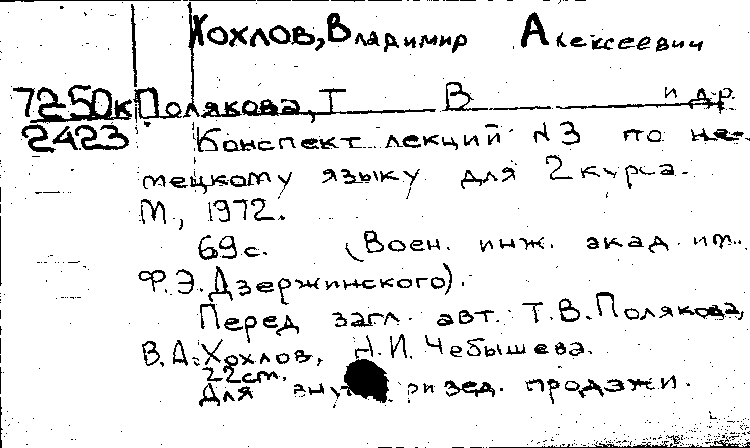 Хохлов, Владимир Алексеевич
72-50к Полякова, Т В и др.
2423 Конспект лекций N3 по не-
мецкому языку для 2 курса.
М., 1972.
69 с. (Воен. инж. акад. им.
Ф.Э. Дзержинского).
Перед загл. авт. Т.В. Полякова,
В.А. Хохлов, Н.И. Чебышева.
22 см.
Для продажи.